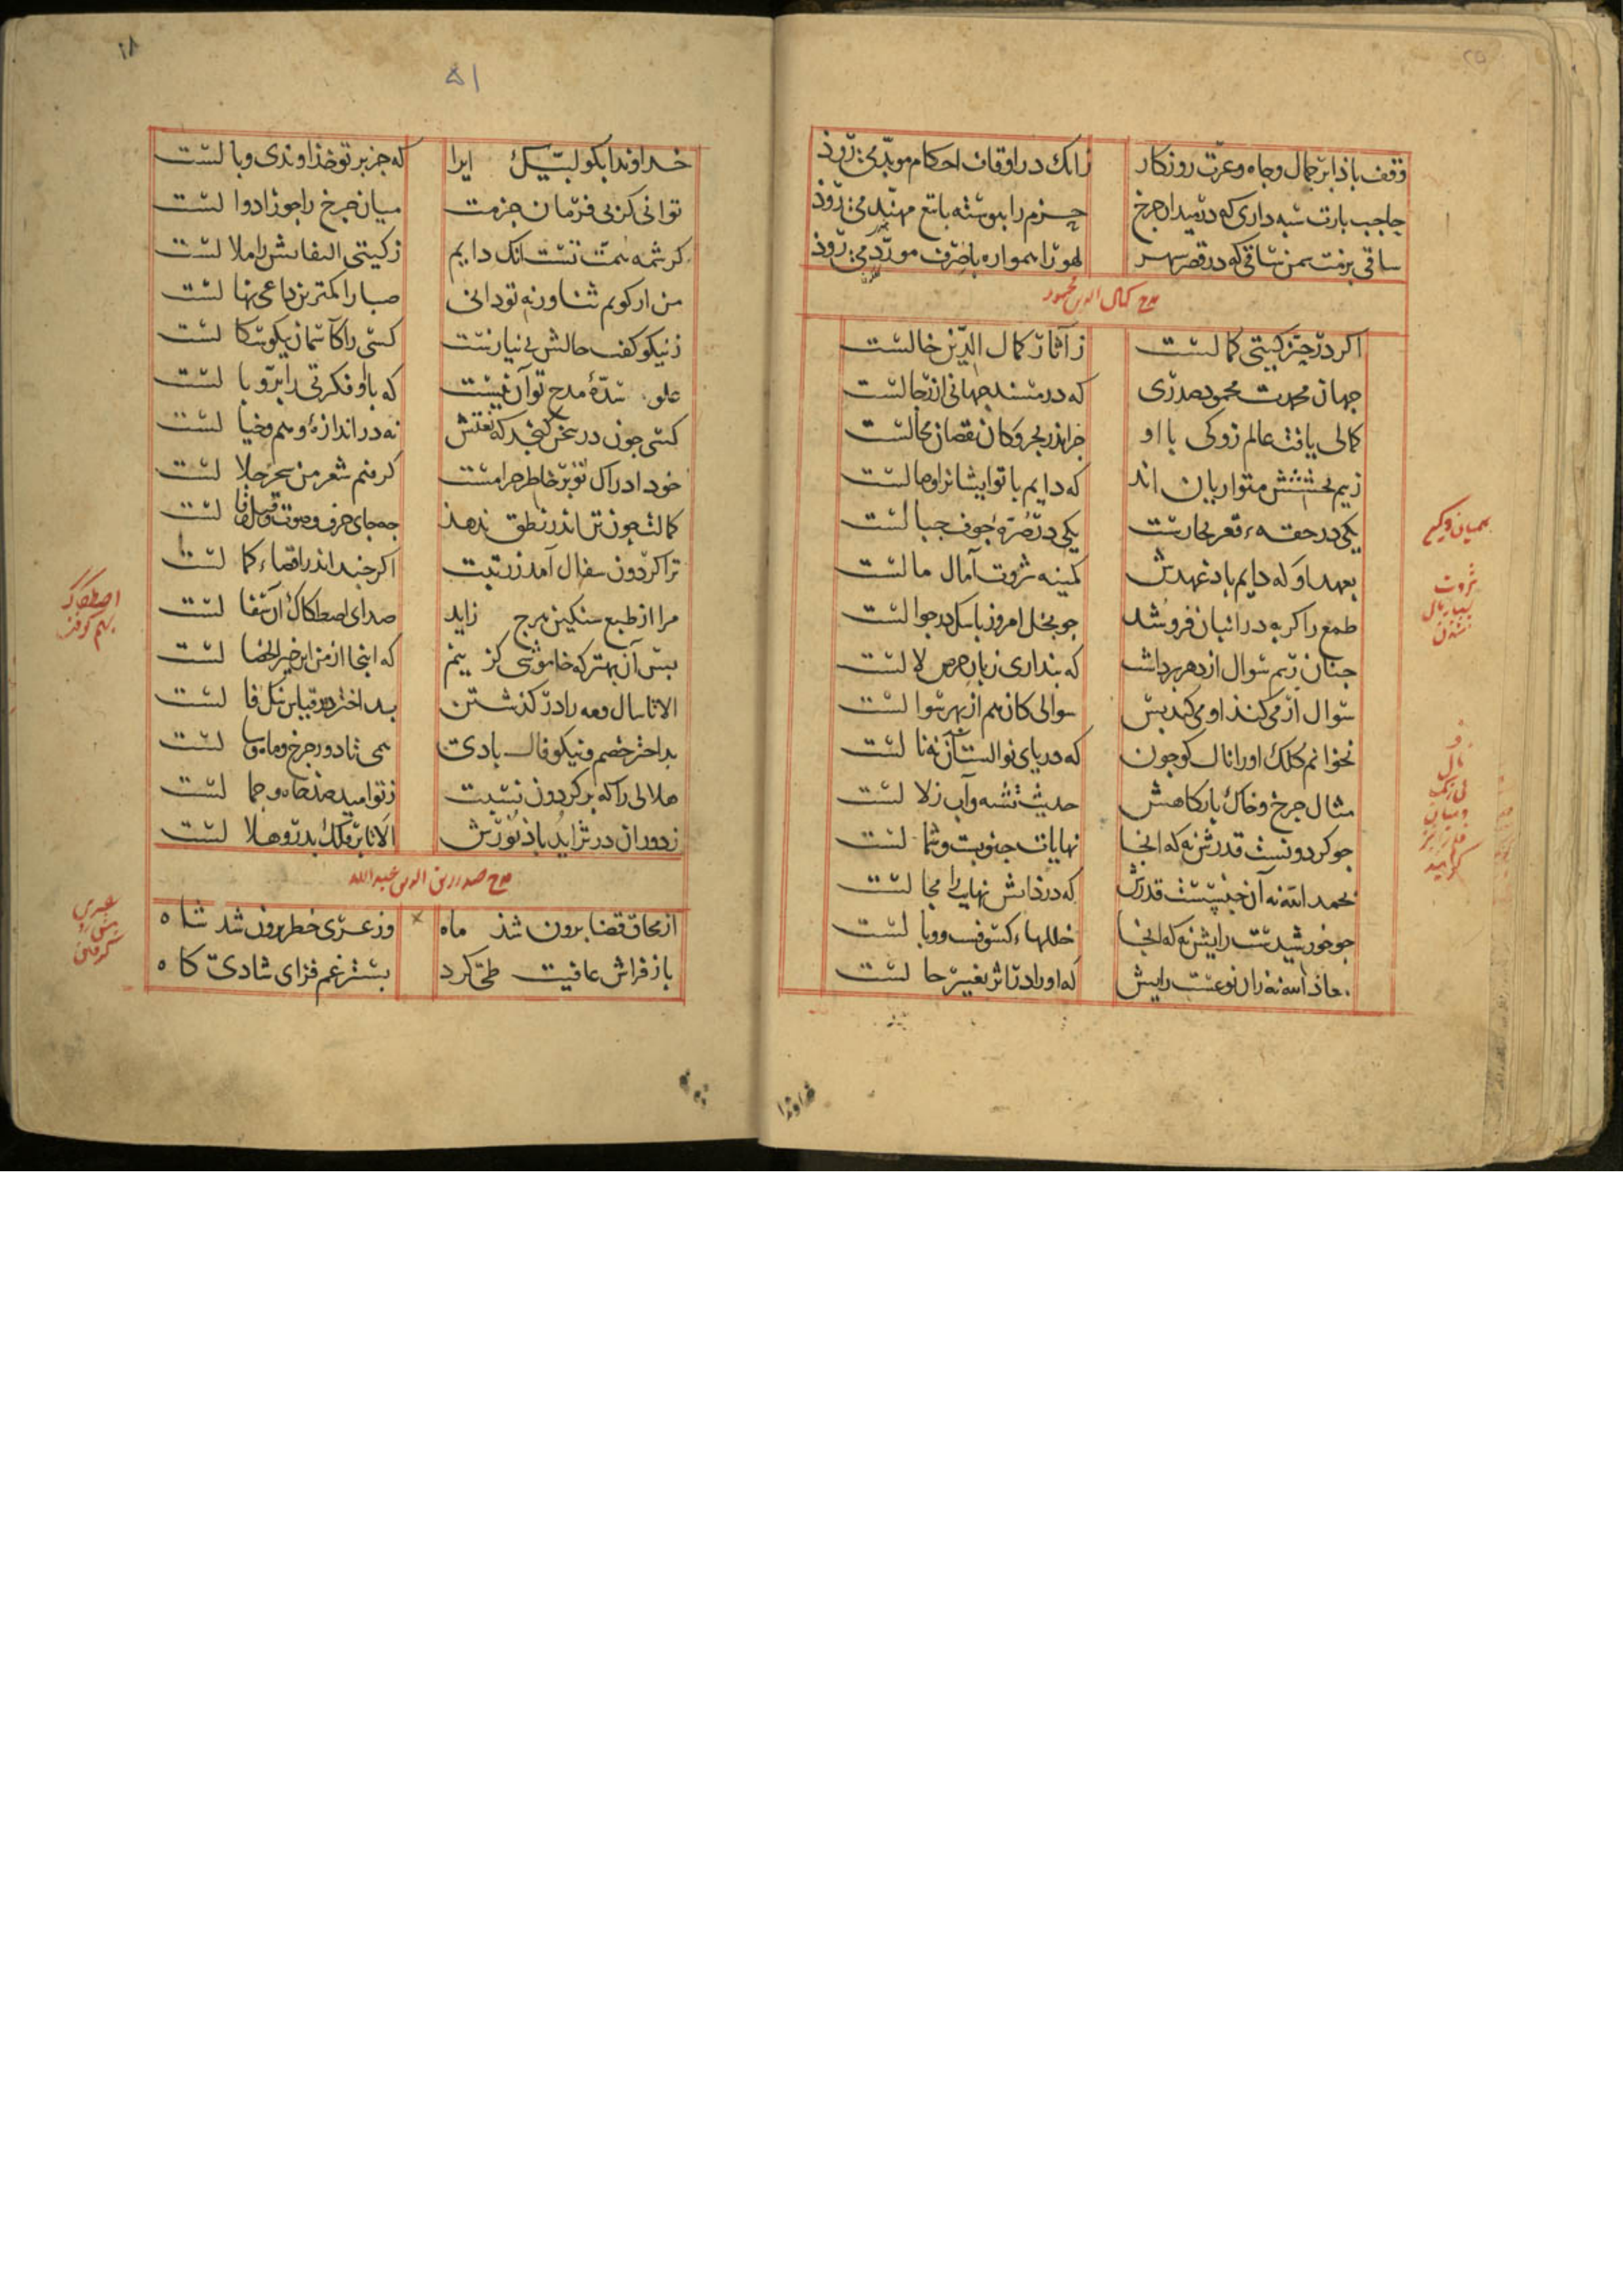 وقف باذا بر جمال و جاه و عزت روزکار زانک در اوقاف احکام موبد می‌روذ
حاجب بارت شبه داری که در میدان جرخ جزم را بیوسته با تیغ مهند می‌روذ
ساقی بزمت سمن ساقی که در قصر سبهر لهو را همواره با صرف مورد می‌روذ
مدح کمال الدین محمود
اکر در حیز کیتی کمالست ز آثار کمال الدین خالست
جهان محمدت محمود صدری که در مسند جهانی از رجالست
کمالی یافت عالم زوکی با او جز اندر بحر و کان نقصان محالست
زبیم بخششش متواریان اند که دایم با تو ایشانرا وصالست
یکی در حقهء قعر بحارست یکی در صرهٔ جوف جبالست
بعهد او که دایم باد عهدش کمینه ثروت آمال مالست
طمع را کربه در انبان فروشد جو بخل امروز باسک در جوالست
جنان رسم سوال از دهر برداشت که بنداری زبان حرص لالست
سوال ار می‌کند او می‌کند بس سوالی کان هم از بهر سوالست
نخوانم کلک او را نال کوجون که دریای نوالست آن نه نالست
مثال جرخ و خاک بارکاهش حدیث تشنه و آب زلالست
جو کردونست قدرش نه که انجا نهایات جنوبست و شمالست
بحمد الله نه آن جنسست قدرش که در ذاتش نهایت را مجالست
جو خورشیدست رایش نه که انجا خللهاء کسوف و وبالست
معاذ الله نه زان نوعست رایش که او را در تاثر تغییر حالست
همیان و کیسه
ثروت
بسیار مال
شدن
خداوندا بکو لبیک ایرا که جز بر تو خذاوندی وبالست
توانی کز بی فرمان جزمت میان جرخ را جوزا دوالست
کرشمه همت تست انک دایم ز کیتی التفاتش را ملالست
من ار کویم ثنا ور نه تو دانی صبا را کمترین داعی نهالست
ز نیکو کفت حالش بی نیازست کسی را کآسمان نیکو سکالست
علو سدهٔ مدح تو آن نیست که با او فکرتی را بر و بالست
کسی جون در سخن کنجد که نعتش نه در اندازهٔ وهم و خیالست
خود ادراک تو بر خاطر حرامست کرفتم شعر من سحر حلالست
کمالت جون تن اندر نطق ندهذ جه جای حرف و صوت و قیل و قالست
ترا کردون سفال آمذ ز رتبت اکر جند اندر اقصاء کمالست
مرا از طبع سنکین هرج زاید صدای اصطکاک آن سفالست
بس آن بهتر که خاموشی کزینم که اینجا از من این خیر الخصالست
الا تا سال و مه را در کذشتن بد اختر در قیاس نیک فالست
بد اختر خصم و نیکو فال بادی همی تا دور جرخ و ماه و سالست
هلالی را که بر کردون نسبت ز تو امید صذ جاه و جمالست
ز دوران در تزاید باذ نورش الا تا بر فلک بدر و هلالست
اصطکاک
بهم کوفتن
مدح صدر زین الدین عبدالله
از محاق قضا برون شذ ماه وز عری خطر برون شد شاه
باز فراش عافیت طی کرد بستر غم فزای شادی کاه
خداوندا
۵۱